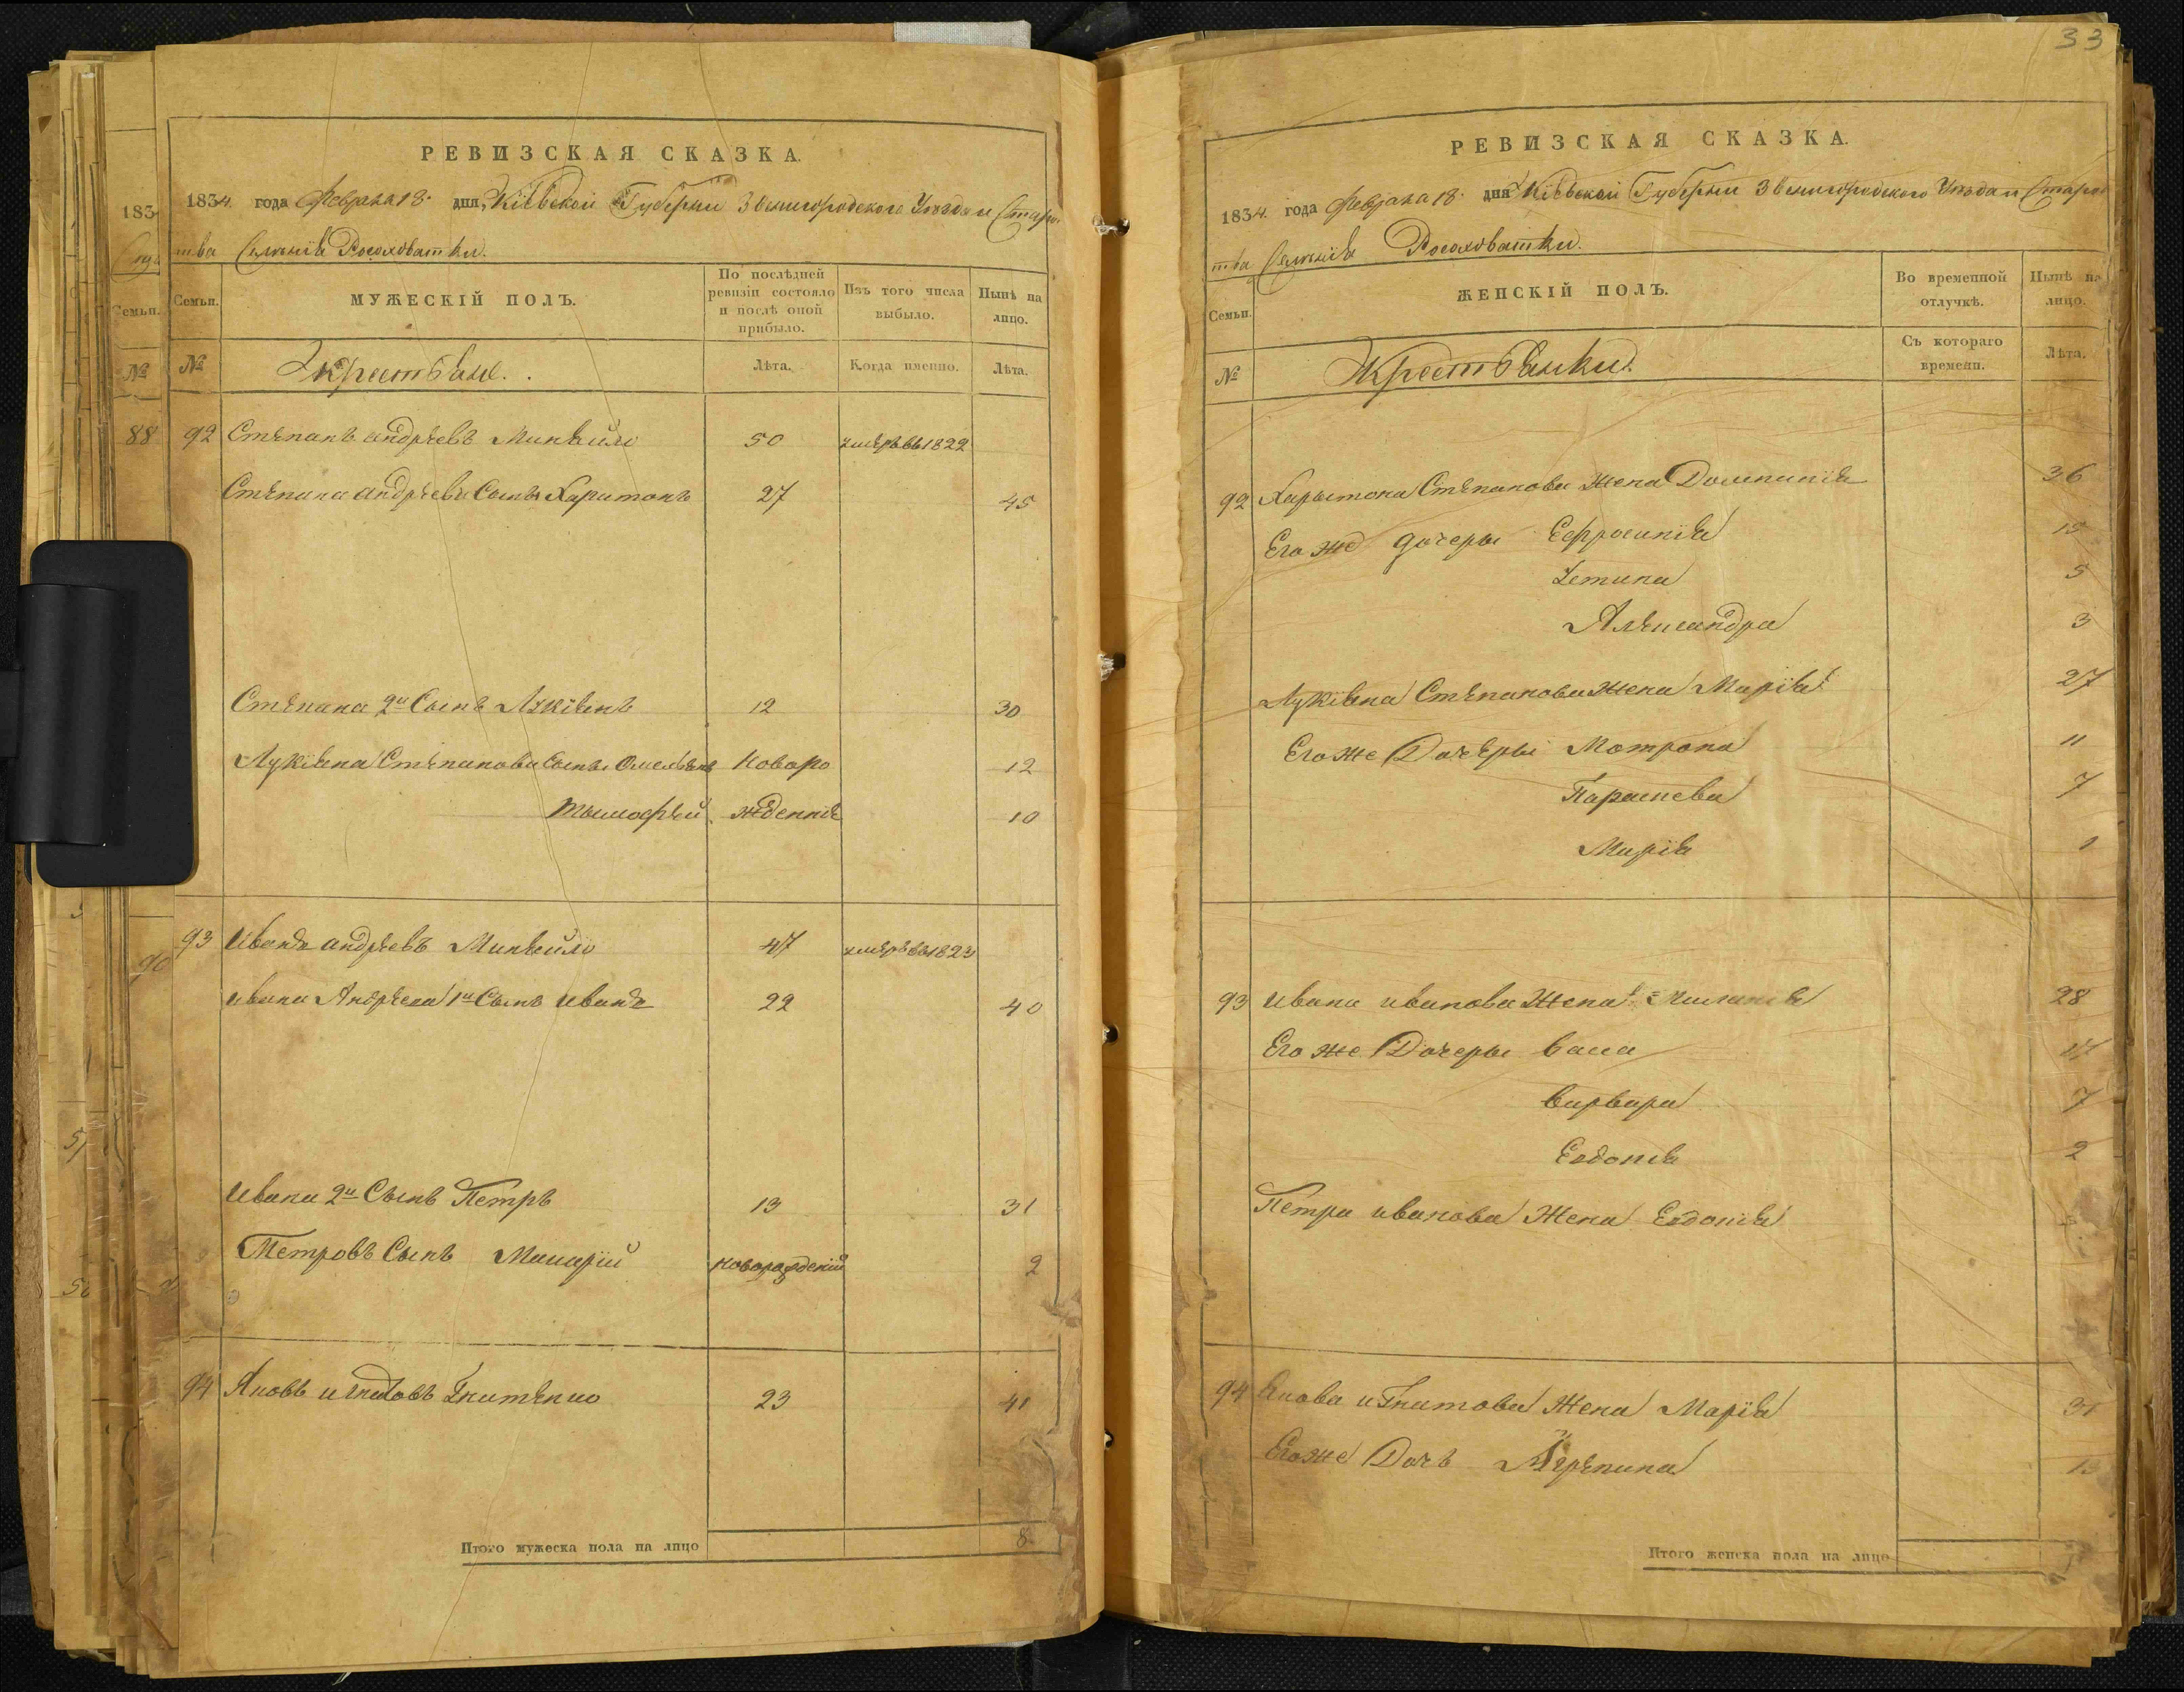 33
РЕВИЗСКАЯ СКАЗКА.
1834. года Февраля 18. дня, Кіевской Губерніи Звенигородского Уезда и Старос
тва Селенія Росоховатки.
Семьи.
МУЖЕСКІЙ ПОЛЪ.
По послѣдней ревизіи состояло и послѣ оной прибыло.
Изъ того числа выбыло.
Нынѣ на лицо.
№
Крестьяне.
Лѣта.
Когда именно.
Лѣта.
88
92 Степанъ андреевъ 50 умеръ въ 1822
Степана андреева Сынъ Харитонъ 27 45
Степана 2й Сынъ Лукіянъ 12 30
Лукіяна Степанова Сынъ Омельянъ Новоро 12
Тымофей жденніе 10
93 Иванъ андреевъ 47 умеръ въ 1823
Ивана Андреева 1й Сынъ Иванъ 22 40
Ивана 2й Сынъ Петръ 13 31
Петровъ Сынъ Макарій новорожденій 2
94 Яковъ игнатовъ Гнитенко 23 41
Итого мужеска пола на лицо 8.
РЕВИЗСКАЯ СКАЗКА.
1834. года Февраля 18. дня Кіевской Губерніи Звенигородского Уезда и Старос
тва Селенія Росоховатки.
Семьи.
ЖЕНСКІЙ ПОЛЪ.
Во временной отлучкѣ.
Нынѣ на лицо.
№
Крестьянки.
Съ котораго времени.
Лѣта.
92 Харытона Степанова Жена Домникія 36
Его же дочеры Ефросинія 15
Устина 5
Александра 3
Лукіяна Степанова Жена Марія 27
Его же Дочеры Мотрона 11
Параскева 7
Марія 1
93 Ивана иванова Жена 28
Его же Дочеры Васа
Варвара 7
Евдокія 2
Петра иванова Жена Евдокія
94 Якова игнатова Жена Марія 31
Его же Дочь Агрепина
Итого женска пола на лицо